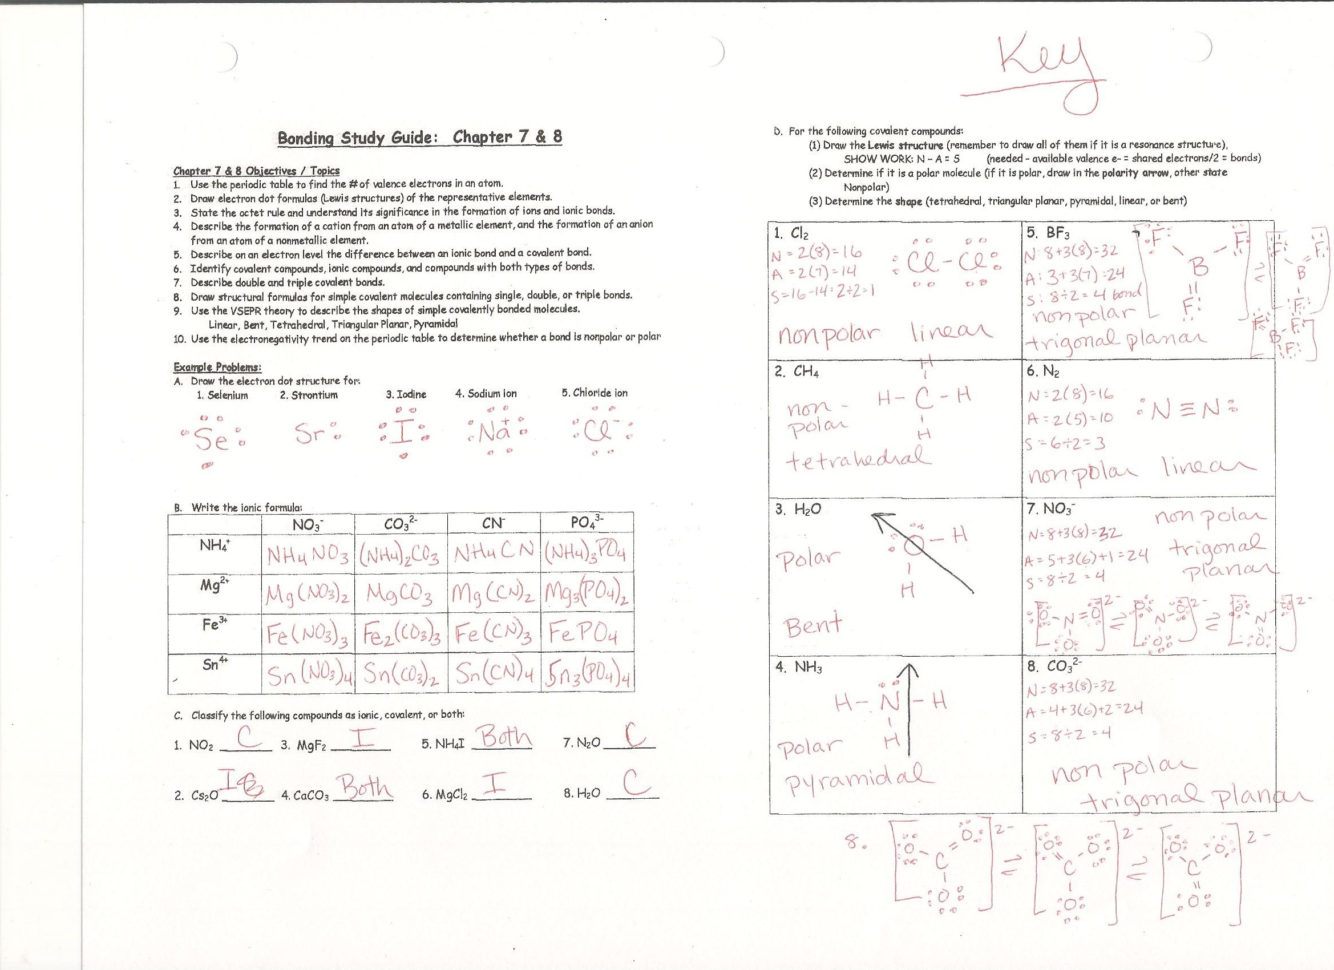 Key
Bonding Study Guide: Chapter 7 & 8
Chapter 7 & 8 Objectives / Topics
1. Use the periodic table to find the # of valence electrons in an atom.
2. Draw electron dot formulas (Lewis structures) of the representative elements.
3. State the octet rule and understand its significance in the formation of ions and ionic bonds.
4. Describe the formation of a cation from an atom of a metallic element, and the formation of an anion
from an atom of a nonmetallic element.
5. Describe on an electron level the difference between an ionic bond and a covalent bond.
6. Identify covalent compounds, ionic compounds, and compounds with both types of bonds.
7. Describe double and triple covalent bonds.
8. Draw structural formulas for simple covalent molecules containing single, double, or triple bonds.
9. Use the VSEPR theory to describe the shapes of simple covalently bonded molecules.
Linear, Bent, Tetrahedral, Triangular Planar, Pyramidal
10. Use the electronegativity trend on the periodic table to determine whether a bond is nonpolar or polar
Example Problems:
A. Draw the electron dot structure for:
1. Selenium 2. Strontium 3. Iodine 4. Sodium ion 5. Chloride ion
Se Sr I Na+ Cl-
B. Write the ionic formula:
NO₃⁻ CO₃²⁻ CN⁻ PO₄³⁻
NH₄⁺ NH₄NO₃ (NH₄)₂CO₃ NH₄CN (NH₄)₃PO₄
Mg²⁺ Mg(NO₃)₂ MgCO₃ Mg(CN)₂ Mg₃(PO₄)₂
Fe³⁺ Fe(NO₃)₃ Fe₂(CO₃)₃ Fe(CN)₃ FePO₄
Sn⁴⁺ Sn(NO₃)₄ Sn(CO₃)₂ Sn(CN)₄ Sn₃(PO₄)₄
C. Classify the following compounds as ionic, covalent, or both:
1. NO₂ C 3. MgF₂ I 5. NH₄I Both 7. N₂O C
2. Cs₂O I 4. CaCO₃ Both 6. MgCl₂ I 8. H₂O C
D. For the following covalent compounds:
(1) Draw the Lewis structure (remember to draw all of them if it is a resonance structure),
SHOW WORK: N - A = S (needed - available valence e- = shared electrons/2 = bonds)
(2) Determine if it is a polar molecule (if it is polar, draw in the polarity arrow, other state
Nonpolar)
(3) Determine the shape (tetrahedral, triangular planar, pyramidal, linear, or bent)
1. Cl₂
N = 2(8) = 16
A = 2(7) = 14
S = 16-14 = 2÷2 = 1
Cl - Cl
nonpolar linear
5. BF₃
N = 8+3(8) = 32
A: 3+3(7) = 24
S: 8÷2 = 4 bond
nonpolar
trigonal planar
F F
B
F
F F
B
F
F F
B
F
2. CH₄
non-
polar
tetrahedral
H
H - C - H
H
6. N₂
N = 2(8) = 16
A = 2(5) = 10
S = 6÷2 = 3
N ≡ N
nonpolar linear
3. H₂O
Polar
O - H
H
Bent
7. NO₃⁻
non polar
N = 8+3(8) = 32
A = 5+3(6)+1 = 24
S = 8÷2 = 4
trigonal
planar
O N = O 2-
O
O N O 2-
O
O N O 2-
O
4. NH₃
H - N - H
H
polar
pyramidal
8. CO₃²⁻
N = 8+3(8) = 32
A = 4+3(6)+2 = 24
S = 8÷2 = 4
non polar
trigonal planar
8.
O C O 2-
O
O C O 2-
O
O C O 2-
O